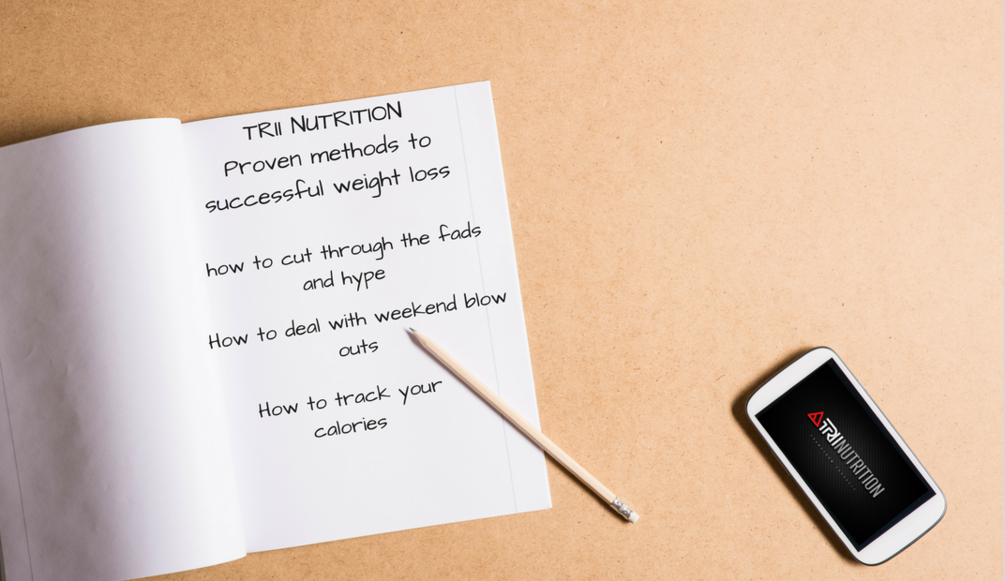 TRII NUTRITION
Proven methods to
successful weight loss
how to cut through the fads
and hype
How to deal with weekend blow
outs
How to track your
calories
TRIINUTRITION